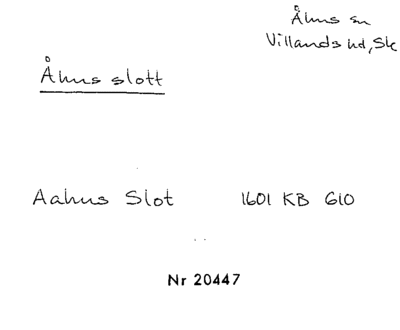 Åhus sn
Villands hd, Sk
Åhus slott
Aahus Slot 1601 KB 610
Nr 20447